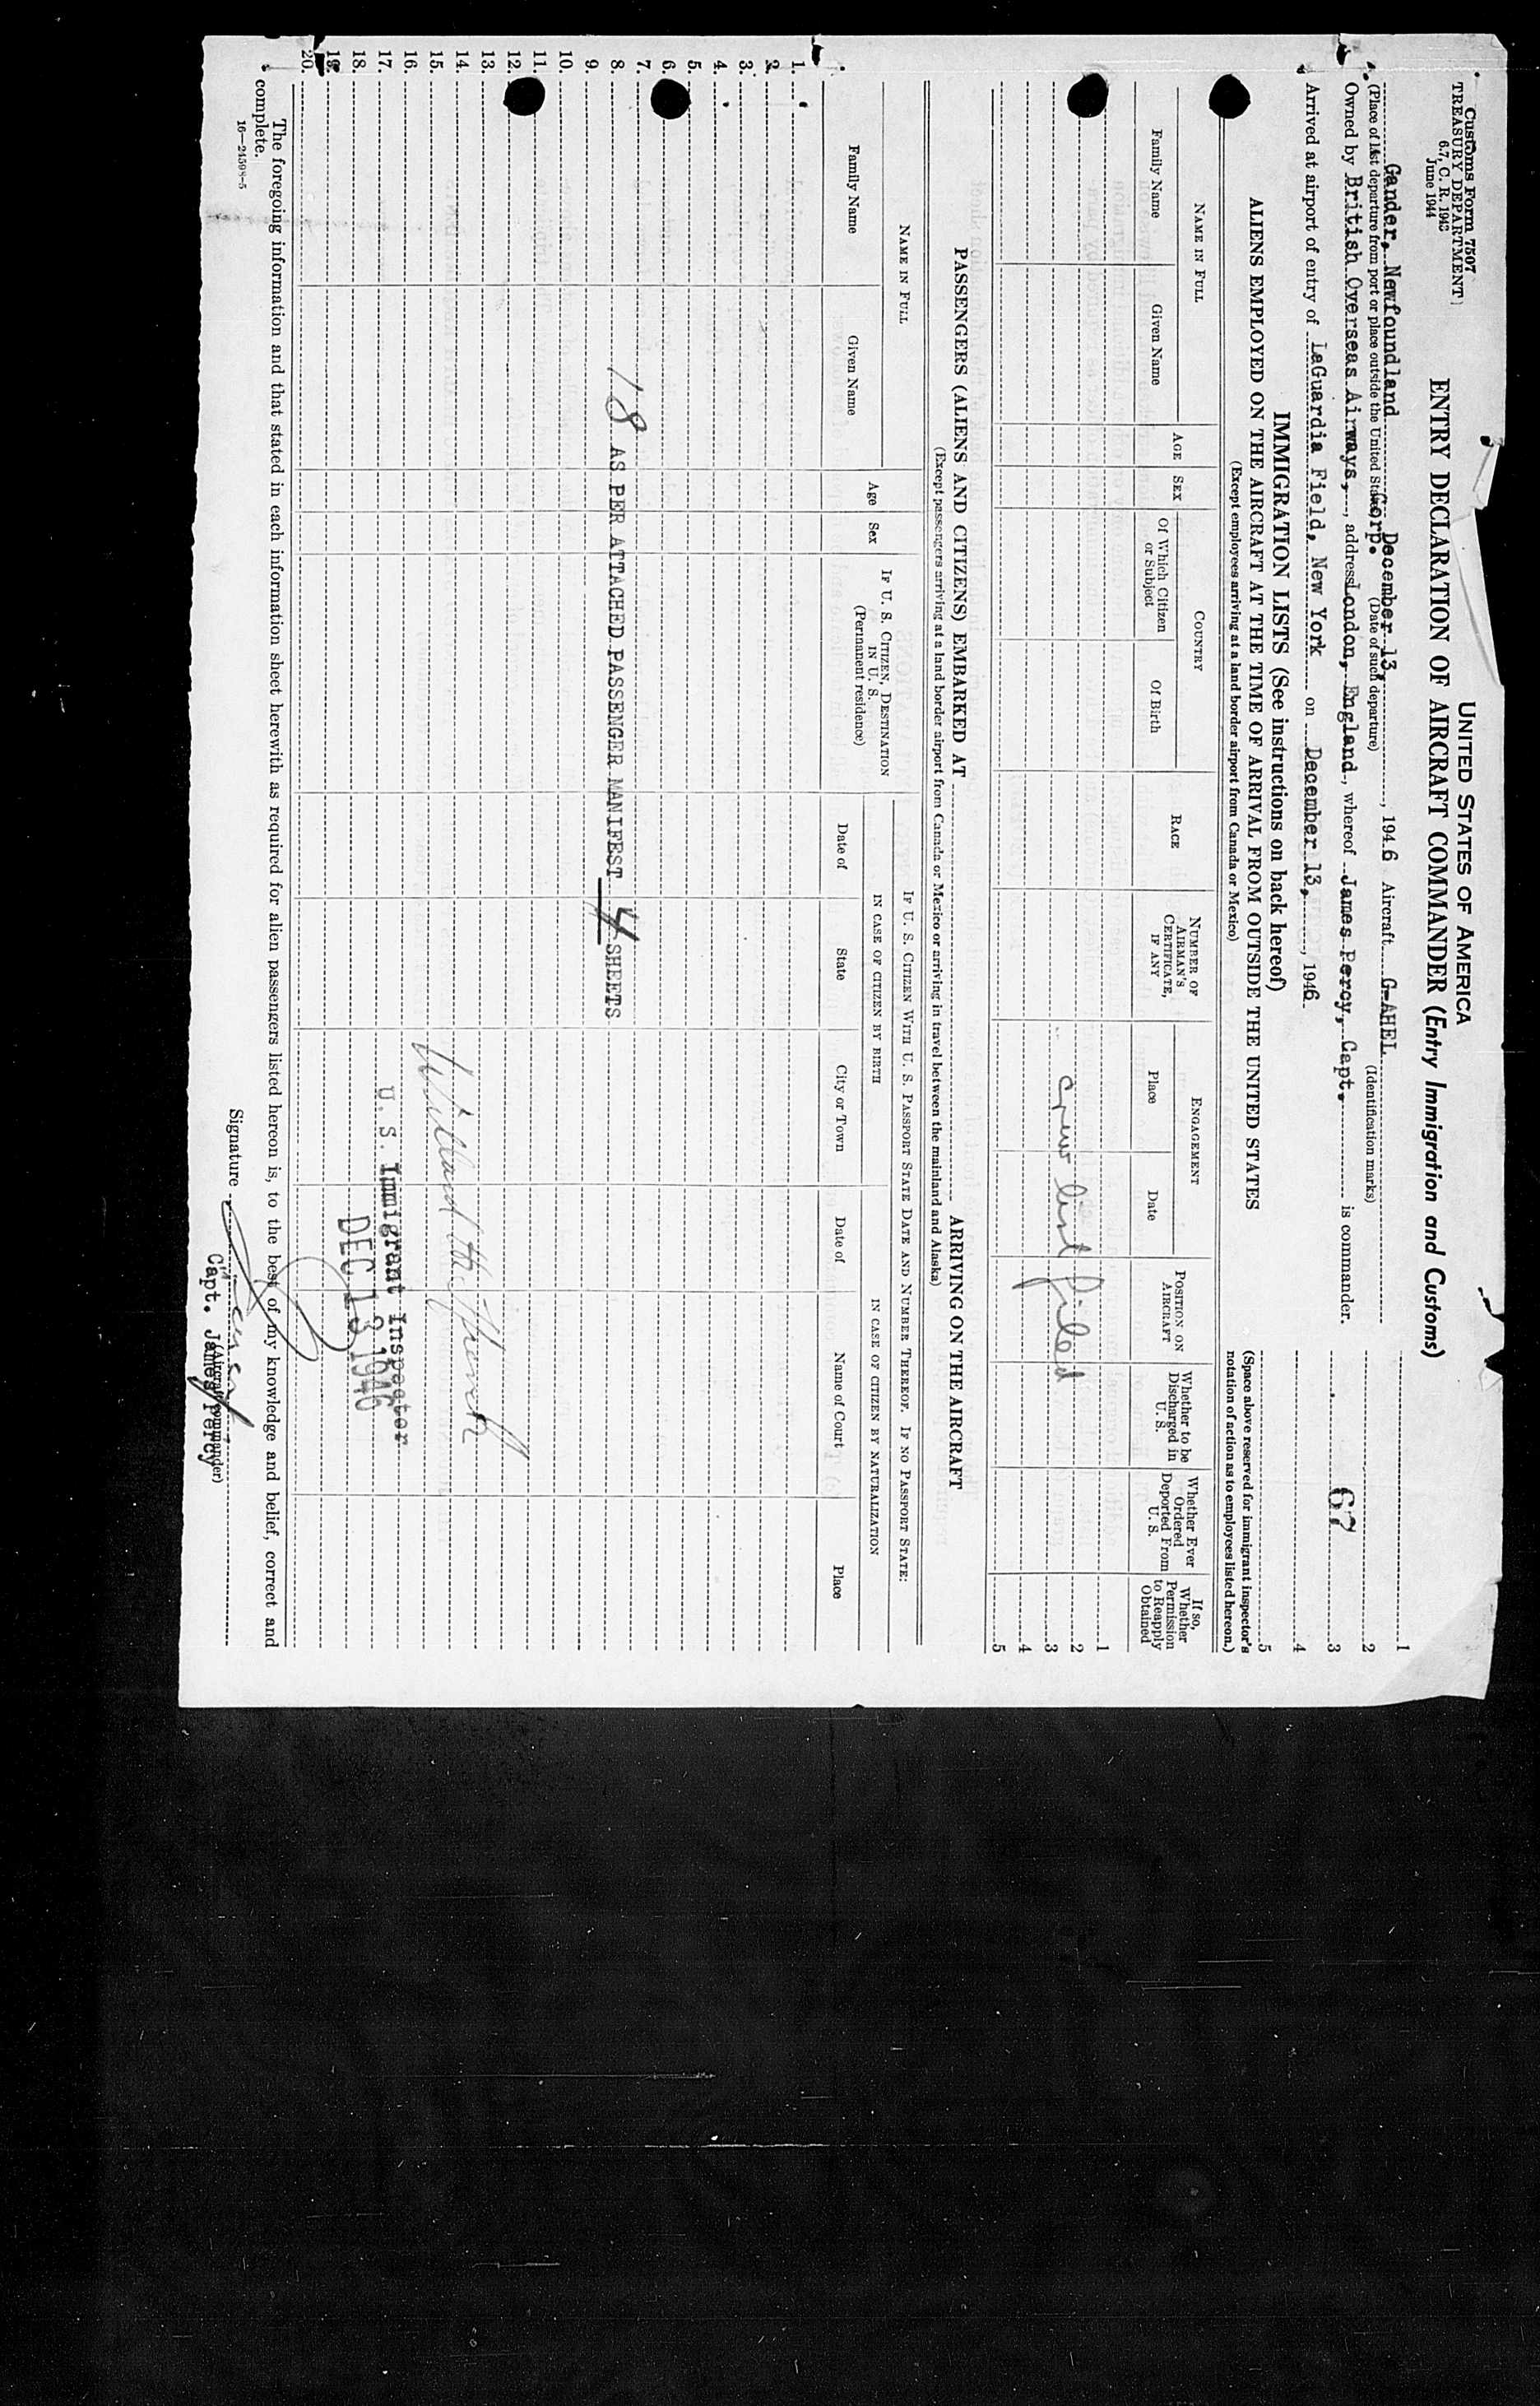 Customs Form 7507
TREASURY DEPARTMENT
6.7, C. R. 1943
June 1944
UNITED STATES OF AMERICA
ENTRY DECLARATION OF AIRCRAFT COMMANDER (Entry Immigration and Customs)
Gander, Newfoundland December 13, 1946 Aircraft G-AHEL
(Place of last departure from port or place outside the United States) (Date of such departure) (Identification marks)
Corp.
Owned by British Overseas Airways, address London, England, whereof James Percy, Capt. is commander.
Arrived at airport of entry of LaGuardia Field, New York on December 13, 1946.
1
2
3
4
5
67
(Space above reserved for immigrant inspector's
notation of action as to employees listed hereon.)
IMMIGRATION LISTS (See instructions on back hereof)
ALIENS EMPLOYED ON THE AIRCRAFT AT THE TIME OF ARRIVAL FROM OUTSIDE THE UNITED STATES
(Except employees arriving at a land border airport from Canada or Mexico)
NAME IN FULL
Family Name
Given Name
AGE
SEX
COUNTRY
Of Which Citizen
or Subject
Of Birth
RACE
NUMBER OF
AIRMAN'S
CERTIFICATE,
IF ANY
ENGAGEMENT
Place
Date
POSITION ON
AIRCRAFT
Whether to be
Discharged in
U. S.
Whether Ever
Ordered
Deported From
U. S.
If so,
Whether
Permission
to Reapply
Obtained
1
2
3
4
5
crew list filed
PASSENGERS (ALIENS AND CITIZENS) EMBARKED AT ARRIVING ON THE AIRCRAFT
(Except passengers arriving at a land border airport from Canada or Mexico or arriving in travel between the mainland and Alaska)
NAME IN FULL
Family Name
Given Name
Age
Sex
IF U. S. CITIZEN, DESTINATION
IN U. S.
(Permanent residence)
IF U. S. CITIZEN WITH U. S. PASSPORT STATE DATE AND NUMBER THEREOF. IF NO PASSPORT STATE:
IN CASE OF CITIZEN BY BIRTH
IN CASE OF CITIZEN BY NATURALIZATION
Date of
State
City or Town
Date of
Name of Court
Place
1.
2.
3.
4.
5.
6.
7.
8. 18 AS PER ATTACHED PASSENGER MANIFEST 4 SHEETS
9.
10.
11.
12.
13.
14.
15.
16.
17. U. S. Immigrant Inspector
18. DEC 13 1946
19.
20.
The foregoing information and that stated in each information sheet herewith as required for alien passengers listed hereon is, to the best of my knowledge and belief, correct and
complete.
16—24598-5
Signature
(Aircraft commander)
Capt. James Percy